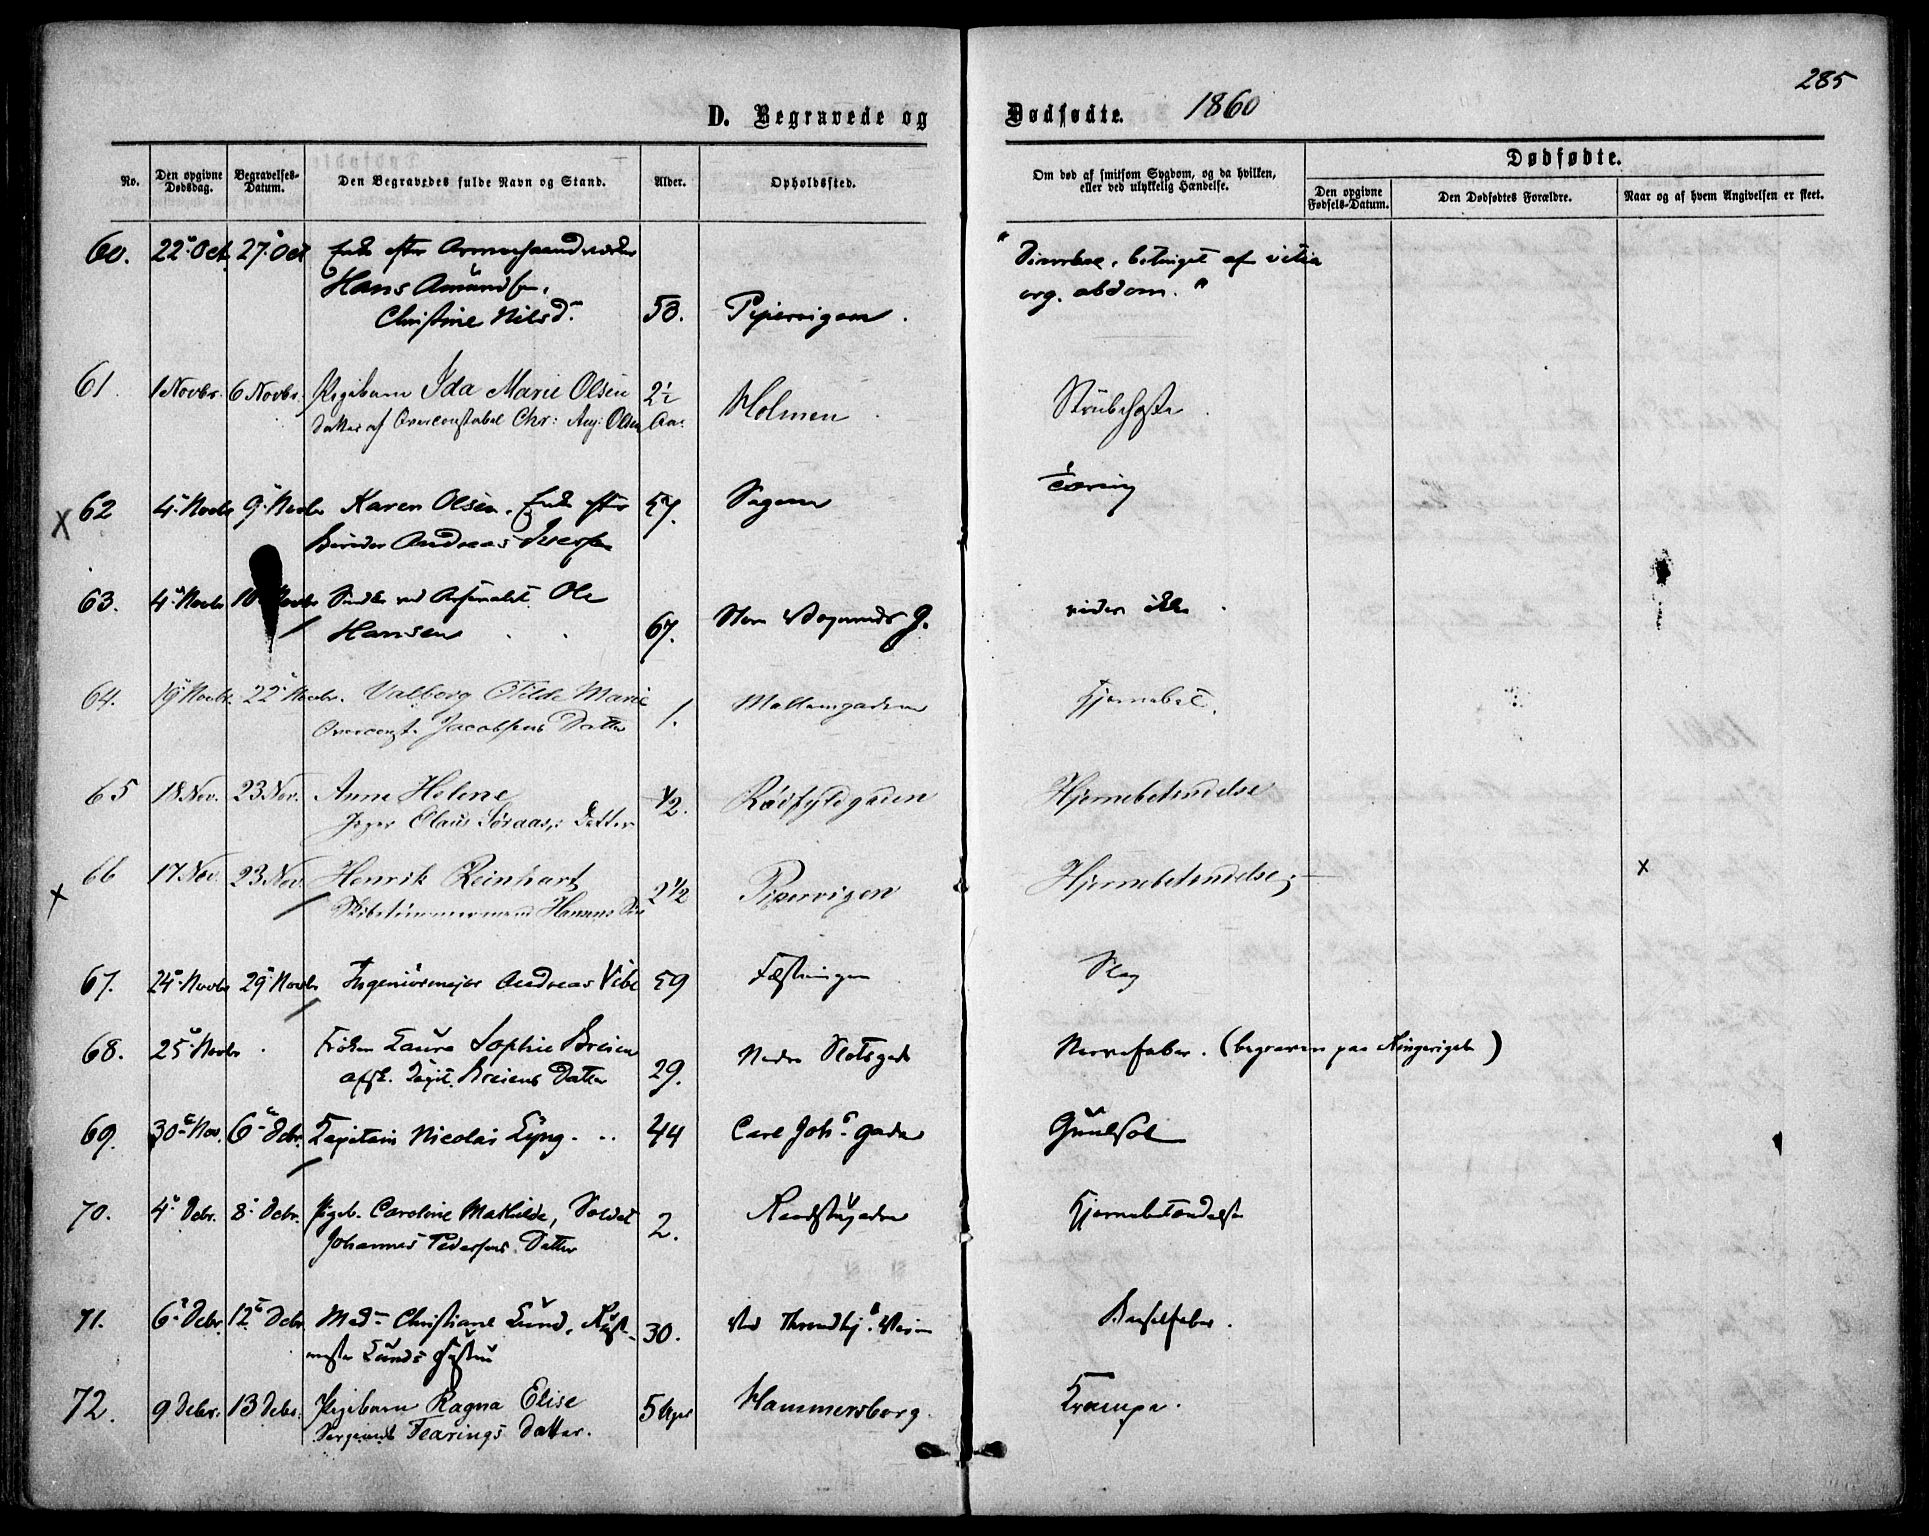 285
D. Begravede og Dødfødte. 1860
No.
Den opgivne Dødsdag.
Begravelses-Datum.
Den Begravedes fulde Navn og Stand.
Alder.
Opholdssted.
Om død af smitsom Sygdom, og da hvilken,
eller ved ulykkelig Hændelse.
Dødfødte.
Den opgivne Fødsels-Datum.
Den Dødfødtes Forældre.
Naar og af hvem Angivelsen er skeet.
60. 22 Oct. 27 Oct Enke efter
Hans Amundsen,
Christine Nilsd. 50. Pipervigen.
betinget af vitia
org. abdom."
61. 1 Novbr. 6 Novbr. Pigebarn Ida Marie Olsen 2½ Holmen Strubehoste
Datter af Overconstabel Chr: Aug: Olsen Aar
X 62 4 Novbr 9 Novbr Karen Olsen, Enke efter 57. Sagene Tæring
Andreas Iversen
63. 4 Novbr 10 Novbr ved Arsenalet Ole
Hansen 67. Store G. vides ikke
64. 19 Novbr. 22 Novbr. Valborg Otilde Marie
Overconst. Jacobsens Datter 1. Møllergaden Hjernebet.
65 18 Nov. 23 Nov. Anne Helene ½. Rødfyldgaden Hjernebetændelse
Jæger Olaus Datter
x 66 17 Nov. 23 Nov Henrik Reinhart 2½ Pipervigen Hjernebetændelse; x
Skibstømmermand Hansens Søn
67. 24 Novbr 29 Novbr Ingeniørmajor Andreas Vibe 59 Fæstningen Slag
68. 25 Novbr Frøken Laura Sophie Breien
afsk. Capit. Breiens Datter 29. Nedre Slotsgade Nervefeber. (begraven paa Ringerige)
69. 30 Nov. 6 Debr. Capitain Nicolai Lyng 44 Carl Joh. gade Guulsot
70. 4 Debr. 8 Debr. Pigeb. Caroline Mathilde, Soldat
Johannes Pedersens Datter 2. Raadstugaden Hjernebetændelse
71. 6 Debr. 12 Debr. Mad. Christiane Lund, Rust-
mester Lunds Hustru 30. ved Throndhj. Veien Barselfeber.
72. 9 Debr. 13 Debr. Pigebarn Ragna Elise 5 Uger Hammersborg. Krampe.
Sergeant Tearings Datter.